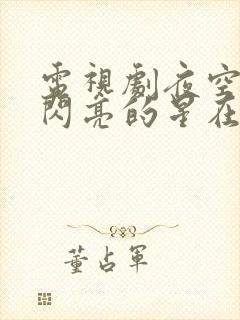 電視劇夜空
閃亮的星在
董占軍